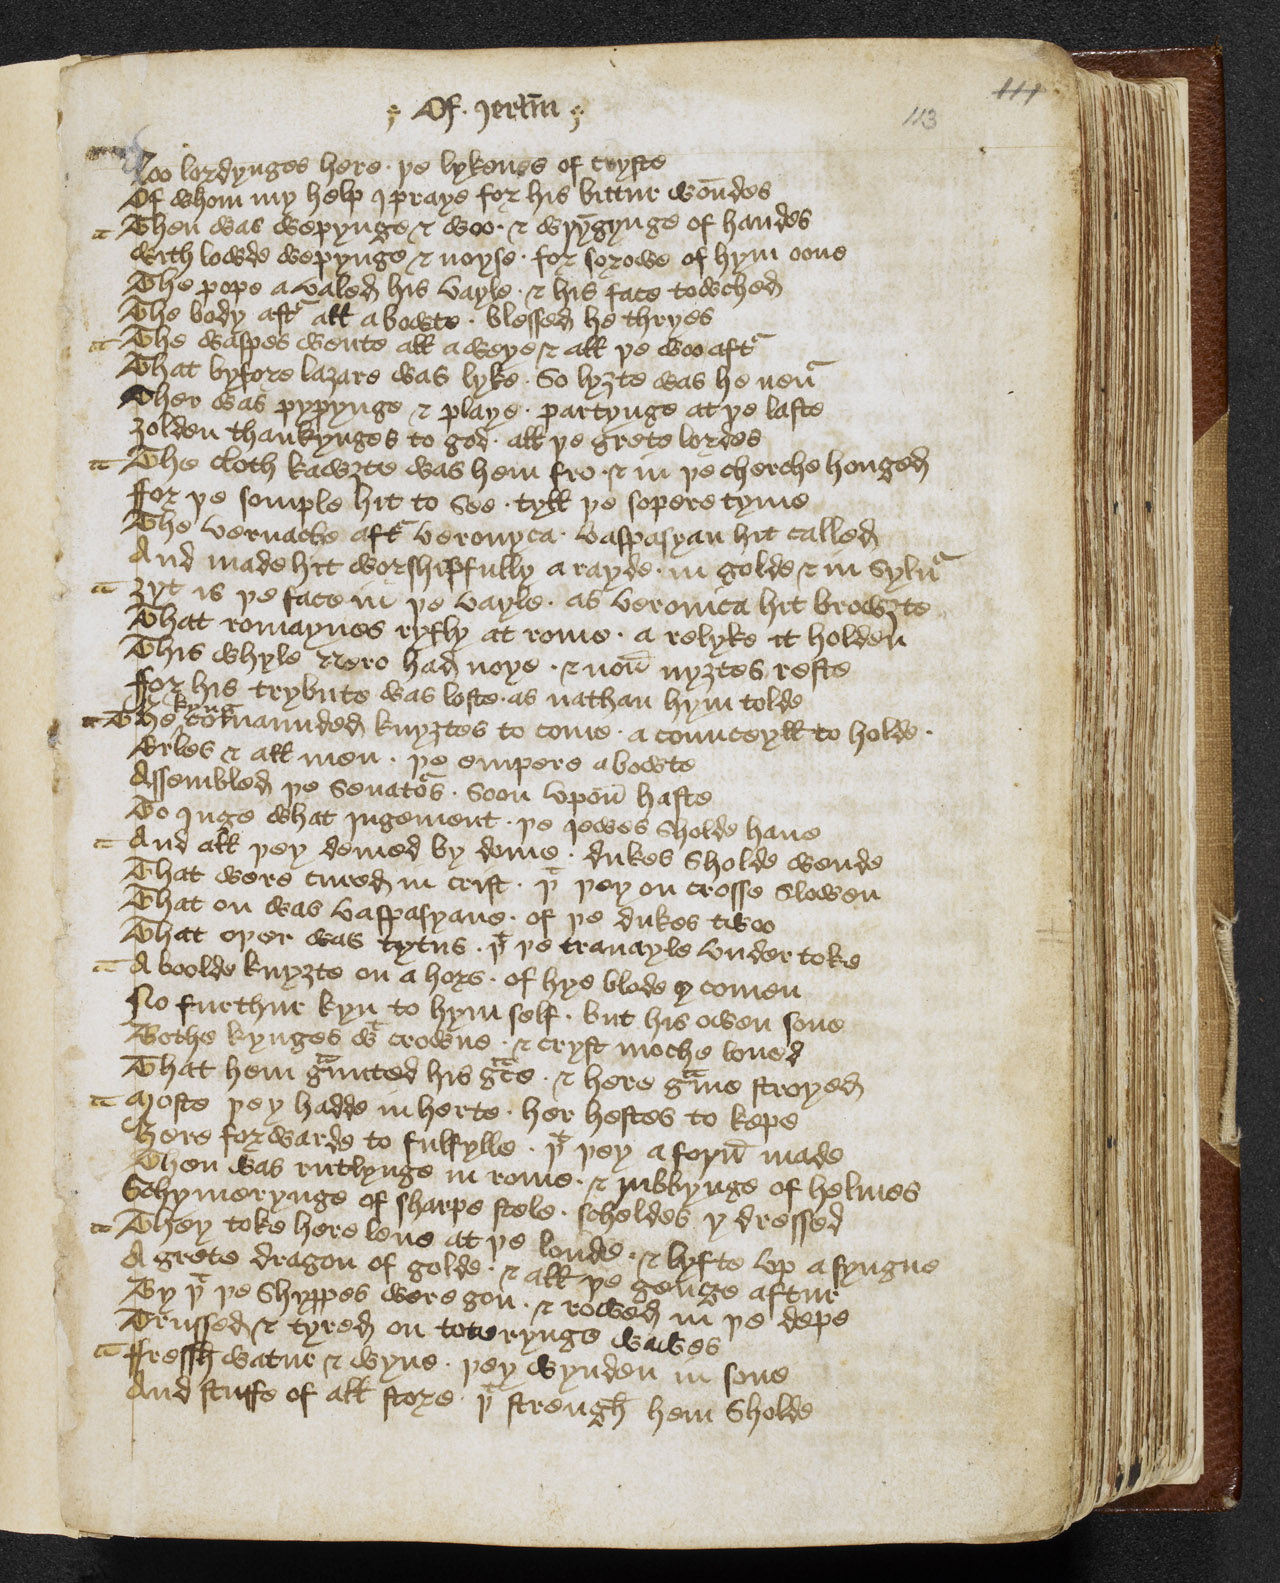 Of . Jerlm̄
111
113
Loo lordynges here . þe lykenes of cryste
Of whom my help I praye for his bittur wōndes
Then was wepynge & woo . & wryngynge of handes
With lowde wepynge & noyse . for sorowe of hym oone
The pope a valed his vayle . & his face towched
The body aft all a bowte . blessed he thryes
The waspes wente all a weye & all þe woo aft
That byfore lazare was lyke . So lyȝte was he neu
Ther was pypynge & playe . partynge at þe laste
ȝolden thankynges to god . all þe grete lordes
The cloth kawȝte was hem fro . & in þe cherche honged
ffor þe somple hit to See . tyll þe sopere tyme
The vernacle aft veronyca . vaspasyan hit called
And made hit worshipfully a rayde . in golde & in Sylu
ȝyt is þe face in þe vayle . as veronica hit browȝte
That romaynes ryfly at rome . a relyke it holden
This whyle Nero had noye . & non̄ nyȝtes reste
ffor his trybute was loste . as nathan hym tolde
The kyng comaunded knyȝtes to come . a counceyll to holde .
Erles & all men . þe empere abowte
Assembled þe Senatos . Soon vpon̄ haste
To Juge what jugement . þe Jewes Sholde haue
And all þey demed by dome . dukes Sholde wende
That were cured in crist . þt þey on crosse Slowen
That on was vaspasyane . of þe dukes twoo
That oþer was tytus . þt þe trauayle vnder toke
A boolde knyȝte on a hors . of hye blode y comen
No furthur kyn to hym self . but his owen sone
Bothe kynges wt crowne . & cryst moche loued
That hem graunted his grace . & here grame stroyed
Moste þey hadde in herte . her hestes to kepe
Here forwarde to fulfylle . þt þey a forn̄ made
Then was rutlynge in rome . & jubbynge of helmes
Schymerynge of sharpe stele . scheldes y dressed
They toke here leue at þe londe . & lyfte vp a syngne
A grete dragon of golde . & all þe genge aftur
By þt þe Shyppes were gon . & rowed in þe depe
Trussed & tyred on toterynge wawes
ffressh watur & wyne . þey wynden in sone
And stuffe of all store . þt strengh hem Sholde